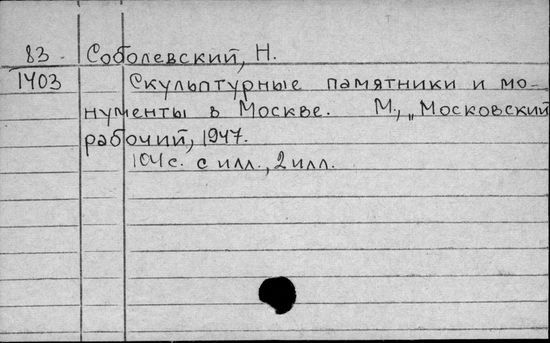 83 Соболевский, Н.
1403 Скульптурные памятники и мо-
нументы в Москве. М., „Московский
рабочий, 1947.
104 с. с илл., 2 илл.